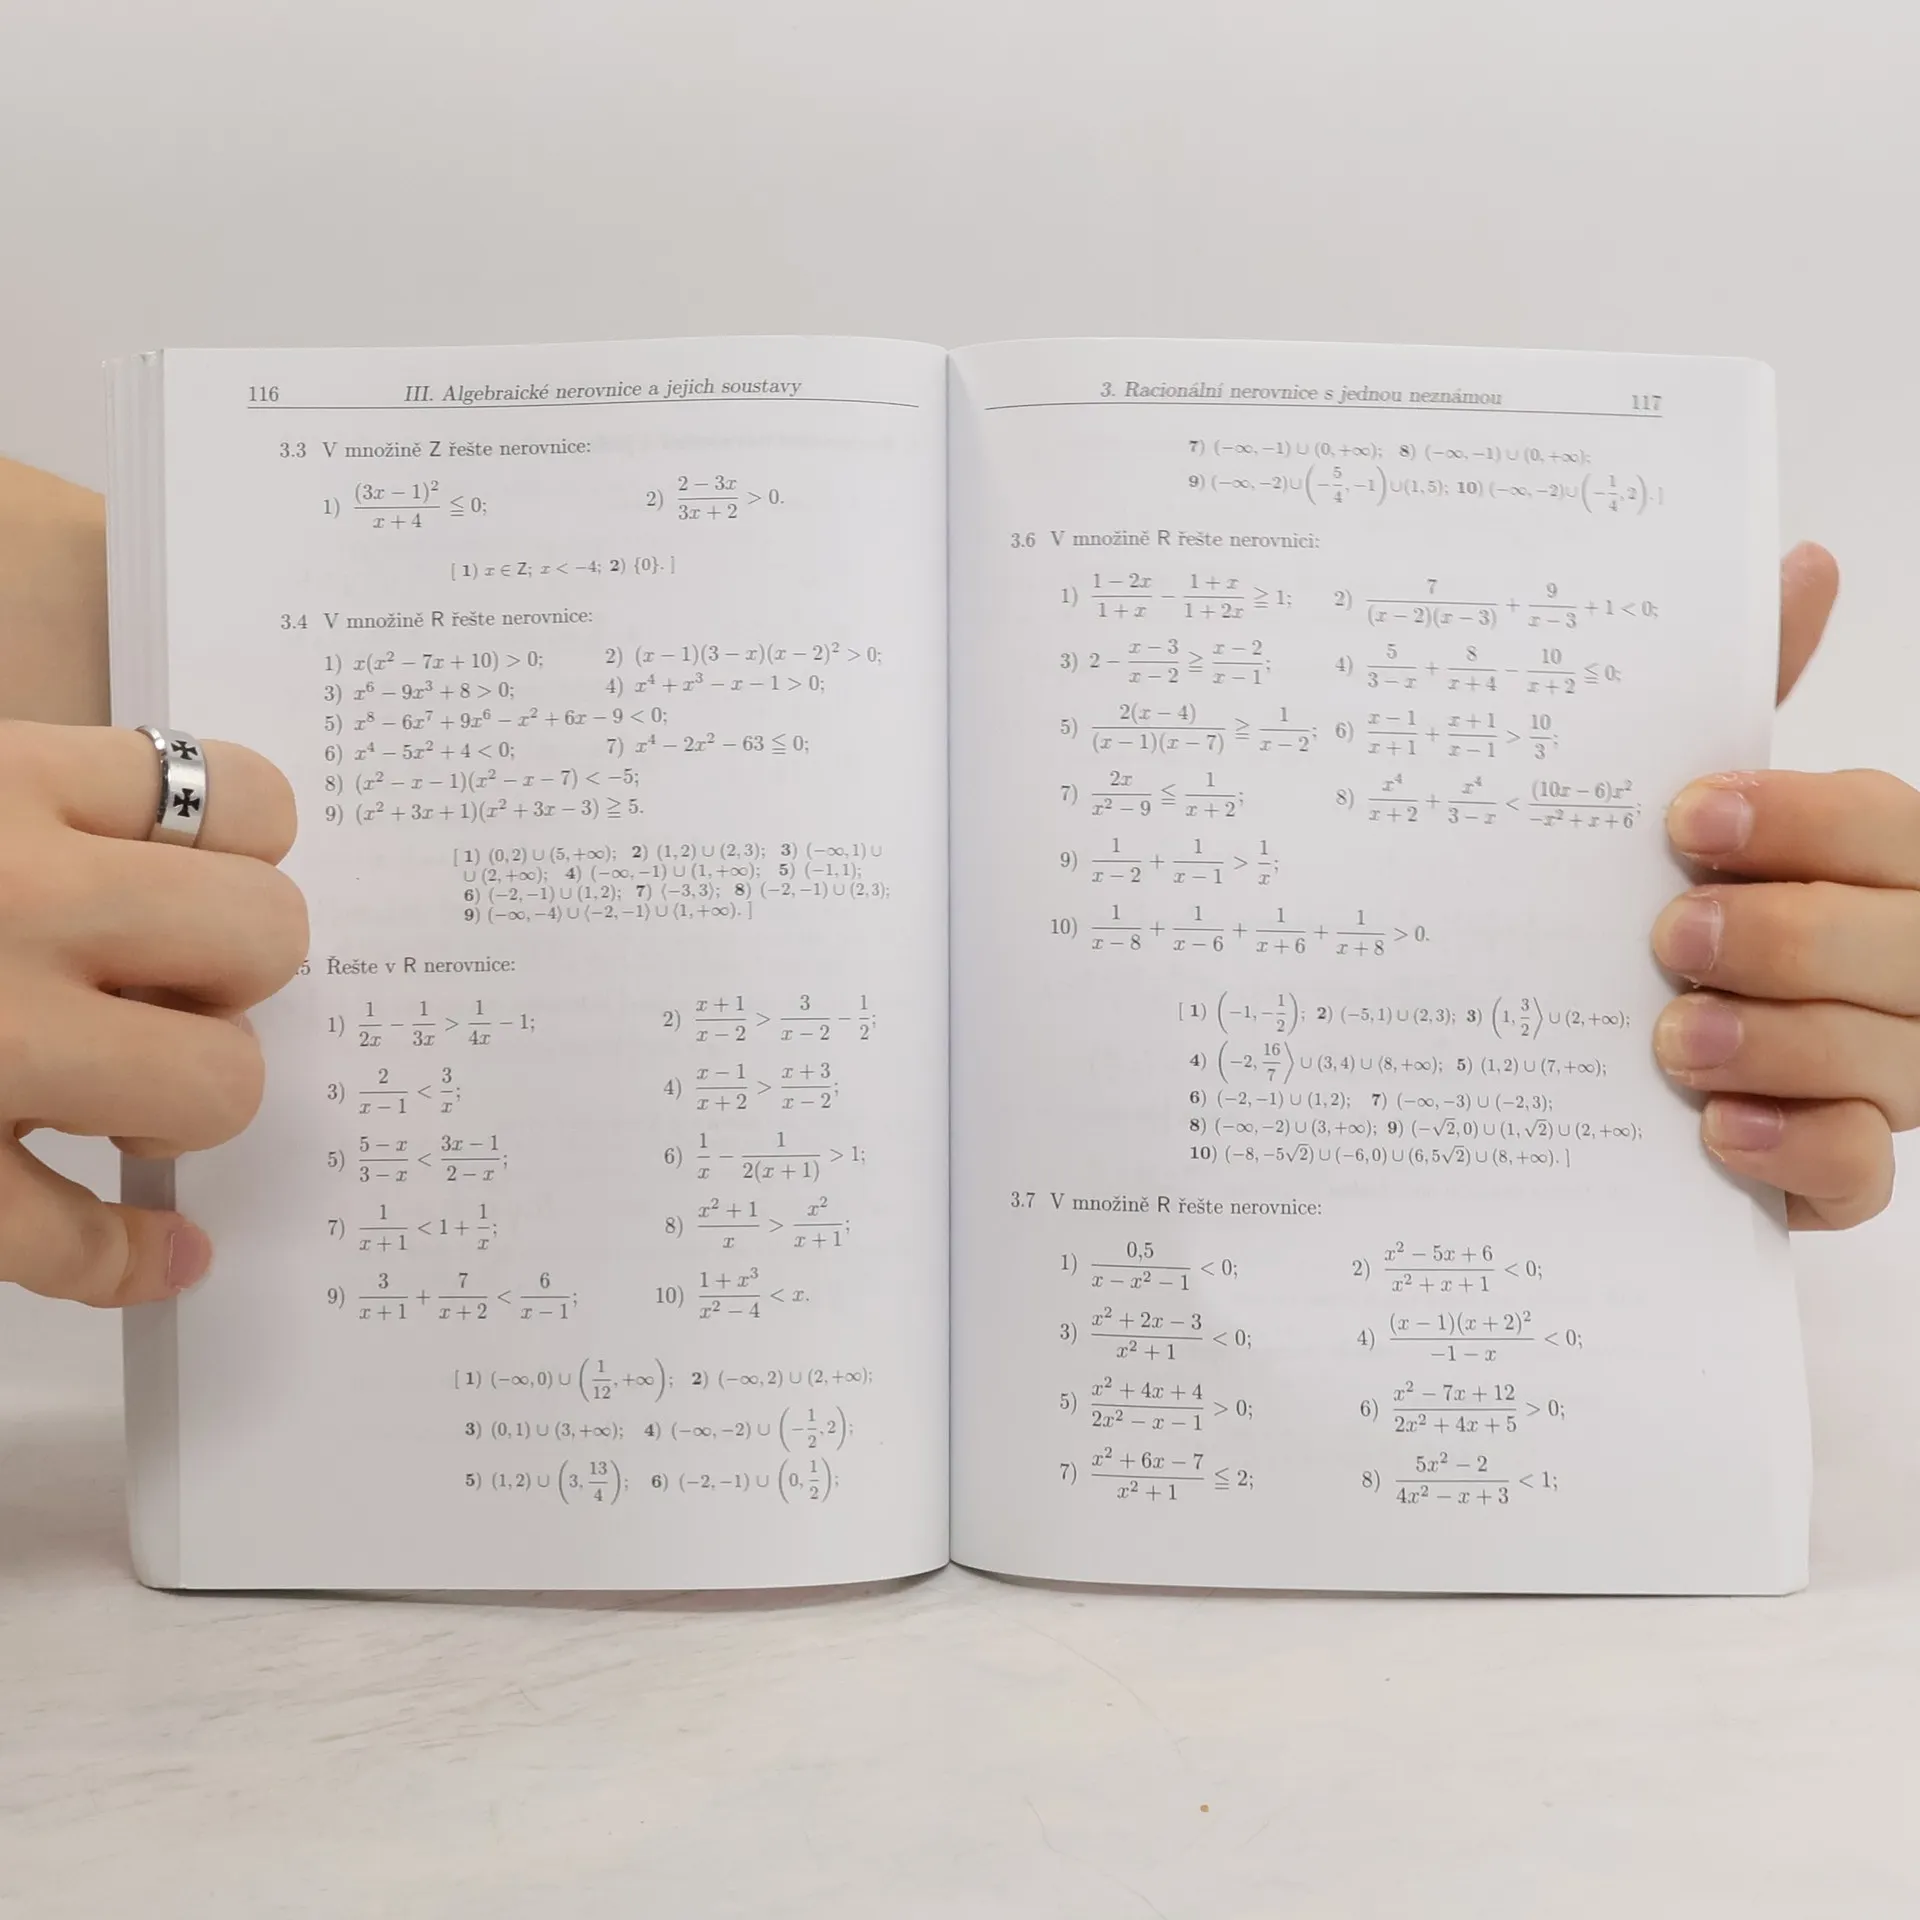 116 III. Algebraické nerovnice a jejich soustavy
3.3 V množině Z řešte nerovnice:
1) (3x − 1)²/(x + 4) ≦ 0; 2) (2 − 3x)/(3x + 2) > 0.
[ 1) x ∈ Z; x < −4; 2) {0}. ]
3.4 V množině R řešte nerovnice:
1) x(x² − 7x + 10) > 0; 2) (x − 1)(3 − x)(x − 2)² > 0;
3) x⁶ − 9x³ + 8 > 0; 4) x⁴ + x³ − x − 1 > 0;
5) x⁸ − 6x⁷ + 9x⁶ − x² + 6x − 9 < 0;
6) x⁴ − 5x² + 4 < 0; 7) x⁴ − 2x² − 63 ≦ 0;
8) (x² − x − 1)(x² − x − 7) < −5;
9) (x² + 3x + 1)(x² + 3x − 3) ≧ 5.
[ 1) (0, 2) ∪ (5, +∞); 2) (1, 2) ∪ (2, 3); 3) (−∞, 1) ∪
∪ (2, +∞); 4) (−∞, −1) ∪ (1, +∞); 5) (−1, 1);
6) (−2, −1) ∪ (1, 2); 7) ⟨−3, 3⟩; 8) (−2, −1) ∪ (2, 3);
9) (−∞, −4⟩ ∪ ⟨−2, −1⟩ ∪ ⟨1, +∞). ]
.5 Řešte v R nerovnice:
1) 1/(2x) − 1/(3x) > 1/(4x) − 1; 2) (x + 1)/(x − 2) > 3/(x − 2) − 1/2;
3) 2/(x − 1) < 3/x; 4) (x − 1)/(x + 2) > (x + 3)/(x − 2);
5) (5 − x)/(3 − x) < (3x − 1)/(2 − x); 6) 1/x − 1/(2(x + 1)) > 1;
7) 1/(x + 1) < 1 + 1/x; 8) (x² + 1)/x > x²/(x + 1);
9) 3/(x + 1) + 7/(x + 2) < 6/(x − 1); 10) (1 + x³)/(x² − 4) < x.
[ 1) (−∞, 0) ∪ (1/12, +∞); 2) (−∞, 2) ∪ (2, +∞);
3) (0, 1) ∪ (3, +∞); 4) (−∞, −2) ∪ (−1/2, 2);
5) (1, 2) ∪ (3, 13/4); 6) (−2, −1) ∪ (0, 1/2);
3. Racionální nerovnice s jednou neznámou 117
7) (−∞, −1) ∪ (0, +∞); 8) (−∞, −1) ∪ (0, +∞);
9) (−∞, −2)∪(−5/4, −1)∪(1, 5); 10) (−∞, −2)∪(−1/4, 2). ]
3.6 V množině R řešte nerovnici:
1) (1 − 2x)/(1 + x) − (1 + x)/(1 + 2x) ≧ 1; 2) 7/((x − 2)(x − 3)) + 9/(x − 3) + 1 < 0;
3) 2 − (x − 3)/(x − 2) ≧ (x − 2)/(x − 1); 4) 5/(3 − x) + 8/(x + 4) − 10/(x + 2) ≦ 0;
5) 2(x − 4)/((x − 1)(x − 7)) ≧ 1/(x − 2); 6) (x − 1)/(x + 1) + (x + 1)/(x − 1) > 10/3;
7) 2x/(x² − 9) ≦ 1/(x + 2); 8) x⁴/(x + 2) + x⁴/(3 − x) < (10x − 6)x²/(−x² + x + 6);
9) 1/(x − 2) + 1/(x − 1) > 1/x;
10) 1/(x − 8) + 1/(x − 6) + 1/(x + 6) + 1/(x + 8) > 0.
[ 1) (−1, −1/2); 2) (−5, 1) ∪ (2, 3); 3) (1, 3/2⟩ ∪ (2, +∞);
4) (−2, 16/7⟩ ∪ (3, 4) ∪ ⟨8, +∞); 5) (1, 2) ∪ (7, +∞);
6) (−2, −1) ∪ (1, 2); 7) (−∞, −3) ∪ (−2, 3);
8) (−∞, −2) ∪ (3, +∞); 9) (−√2, 0) ∪ (1, √2) ∪ (2, +∞);
10) (−8, −5√2) ∪ (−6, 0) ∪ (6, 5√2) ∪ (8, +∞). ]
3.7 V množině R řešte nerovnice:
1) 0,5/(x − x² − 1) < 0; 2) (x² − 5x + 6)/(x² + x + 1) < 0;
3) (x² + 2x − 3)/(x² + 1) < 0; 4) (x − 1)(x + 2)²/(−1 − x) < 0;
5) (x² + 4x + 4)/(2x² − x − 1) > 0; 6) (x² − 7x + 12)/(2x² + 4x + 5) > 0;
7) (x² + 6x − 7)/(x² + 1) ≦ 2; 8) (5x² − 2)/(4x² − x + 3) < 1;